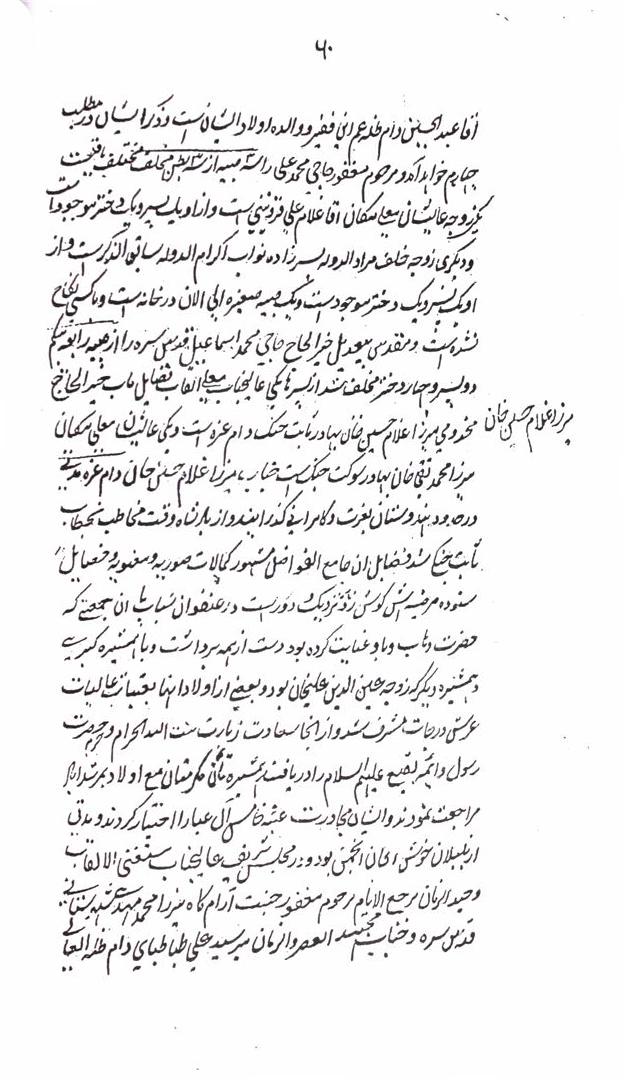 ۶۰
آقا عبدالحسین دام ظله عم این فقیر و والده اولاد ایشان است و ذکر ایشان در مطلب
چهارم خواهد آمد و مرحوم مغفور حاجی محمد علی را سه صبیه از سه بطن مختلف مخلف یافتیست
یکی زوجه عالیشان معلی مکان آقا غلام علی قزوینی است و از او یک پسر و یک دختر موجود است
و دیگری زوجه خلف مراد الدوله پسرزاده نواب اکرام الدوله سابق الذکر است و از
او یک پسر و یک دختر موجود است و یک صبیه صغیره الی الآن در خانه است و با کسی نکاح
نشده است و مقدس بیعدیل خیر الحاج حاجی محمد اسماعیل قدس سره را از صبیه رابعه بیگم
دو پسر و چهار دختر مخلف شد از پسرها یکی عالیجناب معلی القاب فضایل مآب خیر الحاج
مخدومی میرزا غلام حسین خان بهادر ثابت جنگ دام عزه است و یکی عالیشان معلی مکان
میرزا غلام حسین خان
میرزا محمد تقی خان بهادر شوکت جنگ است جناب میرزا غلام حسین خان دام عزه مدتی
در حدود هندوستان بعزت و کامرانی گذرانید و از پادشاه وقت مخاطب بخطاب
ثابت جنگ شد فضایل آن جامع الفواضل مشهور کمالات صوریه و معنویه و خصایل
ستوده مرضیه اش گوش زد نزدیک و دور است در عنفوان شباب با آن جمعیتی که
حضرت وهاب باو عنایت کرده بود دست از همه برداشت و با همشیره کبری
و همشیره دیگر که زوجه معین الدین علیخان بود و بعضی از اولاد آنها بعتبات عالیات
عرش درجات مشرف شد و از آنجا سعادت زیارت بیت الله الحرام و حضرت
رسول و ائمه بقیع علیهم السلام را دریافت همشیره ثانی مع اولاد بمرشدآباد
مراجعت نمودند و ایشان مجاورت عتبه خامس آل عبا را اختیار کردند و مدتی
از بلبلان خوش الحان انجمن بود و در مجلس شریف عالیجناب مستغنی الالقاب
وحید الزمان مرجع الانام مرحوم مغفور جنت آرام گاه میرزا محمد مهدی شهرستانی
قدس سره و جناب مجتهد العصر و الزمان میر سید علی طباطبای دام ظله العالی